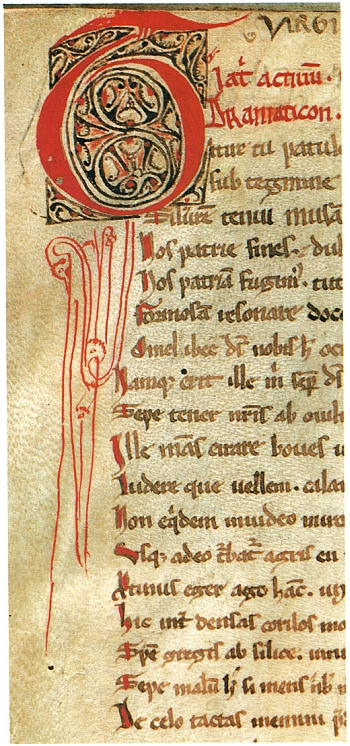 VIRGI
Dramaticon.
T itur tu patul
sub tegmine
Siluestrē tenui musā
Nos patrie fines. dul
Nos patriā fugim'. tut
Formosā resonare doce
O melibee ds̄ nobis h̄ oci
Namq; erit ille m̄ sēp ds̄
Sepe tener nr̄is ab ouili
Ille mās errare boues u
Ludere que uellem. calam
Non eq̇dem inuideo miro
Vsq; adeo t̄bat' agris en
Ptinus eger ago hāc. ui
hic int' densas corilos mo
Spē gregis ab silice.
Sepe malū h' si mens
De celo tactas memini